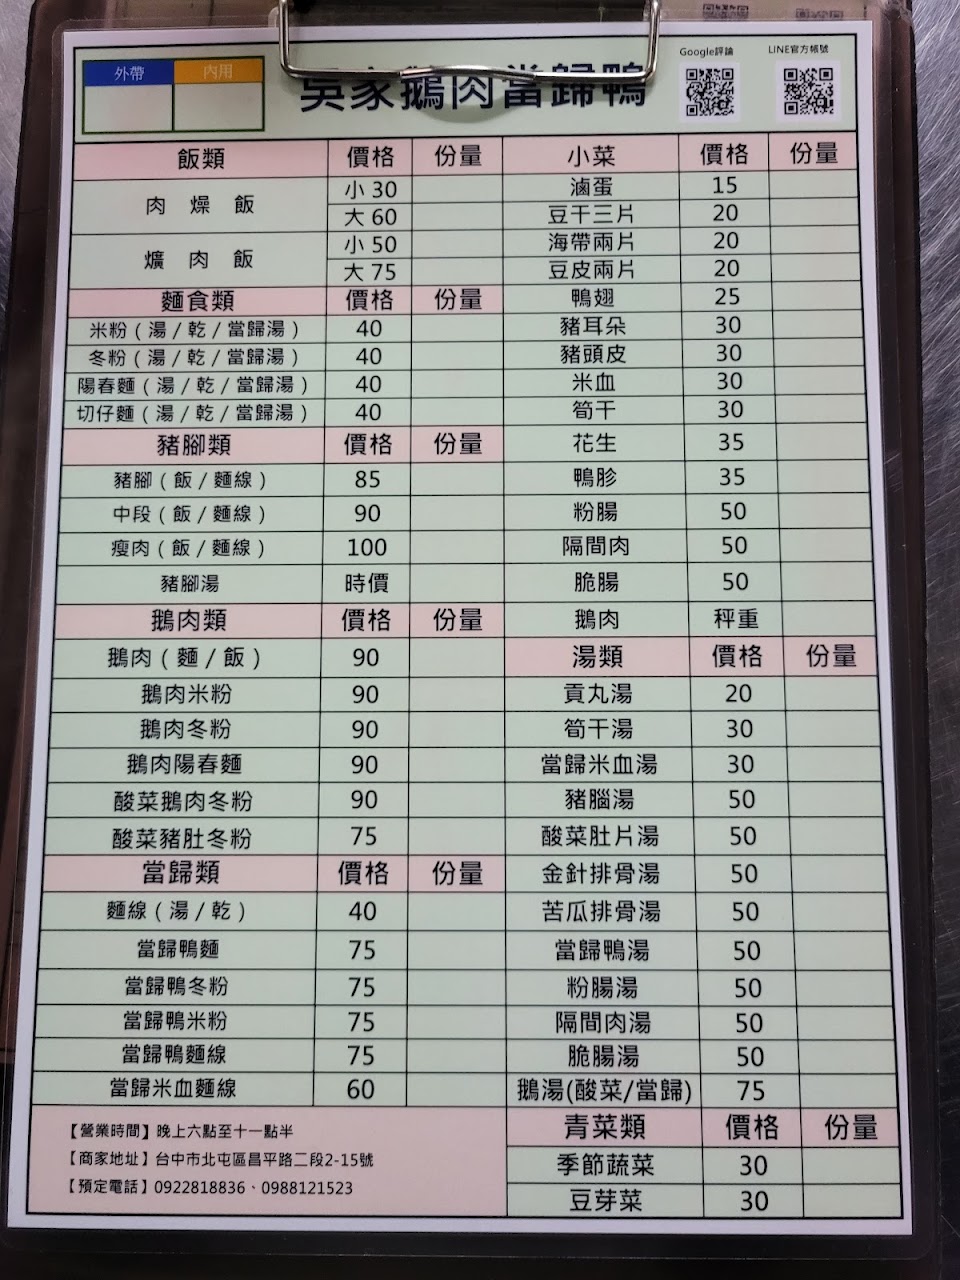 Google評論
LINE官方帳號
外帶 內用
吳家鵝肉當歸鴨
飯類 價格 份量
肉燥飯 小 30
大 60
爌肉飯 小 50
大 75
麵食類 價格 份量
米粉（湯/乾/當歸湯） 40
冬粉（湯/乾/當歸湯） 40
陽春麵（湯/乾/當歸湯） 40
切仔麵（湯/乾/當歸湯） 40
豬腳類 價格 份量
豬腳（飯/麵線） 85
中段（飯/麵線） 90
瘦肉（飯/麵線） 100
豬腳湯 時價
鵝肉類 價格 份量
鵝肉（麵/飯） 90
鵝肉米粉 90
鵝肉冬粉 90
鵝肉陽春麵 90
酸菜鵝肉冬粉 90
酸菜豬肚冬粉 75
當歸類 價格 份量
麵線（湯/乾） 40
當歸鴨麵 75
當歸鴨冬粉 75
當歸鴨米粉 75
當歸鴨麵線 75
當歸米血麵線 60
【營業時間】晚上六點至十一點半
【商家地址】台中市北屯區昌平路二段2-15號
【預定電話】0922818836、0988121523
小菜 價格 份量
滷蛋 15
豆干三片 20
海帶兩片 20
豆皮兩片 20
鴨翅 25
豬耳朵 30
豬頭皮 30
米血 30
筍干 30
花生 35
鴨胗 35
粉腸 50
隔間肉 50
脆腸 50
鵝肉 秤重
湯類 價格 份量
貢丸湯 20
筍干湯 30
當歸米血湯 30
豬腦湯 50
酸菜肚片湯 50
金針排骨湯 50
苦瓜排骨湯 50
當歸鴨湯 50
粉腸湯 50
隔間肉湯 50
脆腸湯 50
鵝湯(酸菜/當歸) 75
青菜類 價格 份量
季節蔬菜 30
豆芽菜 30